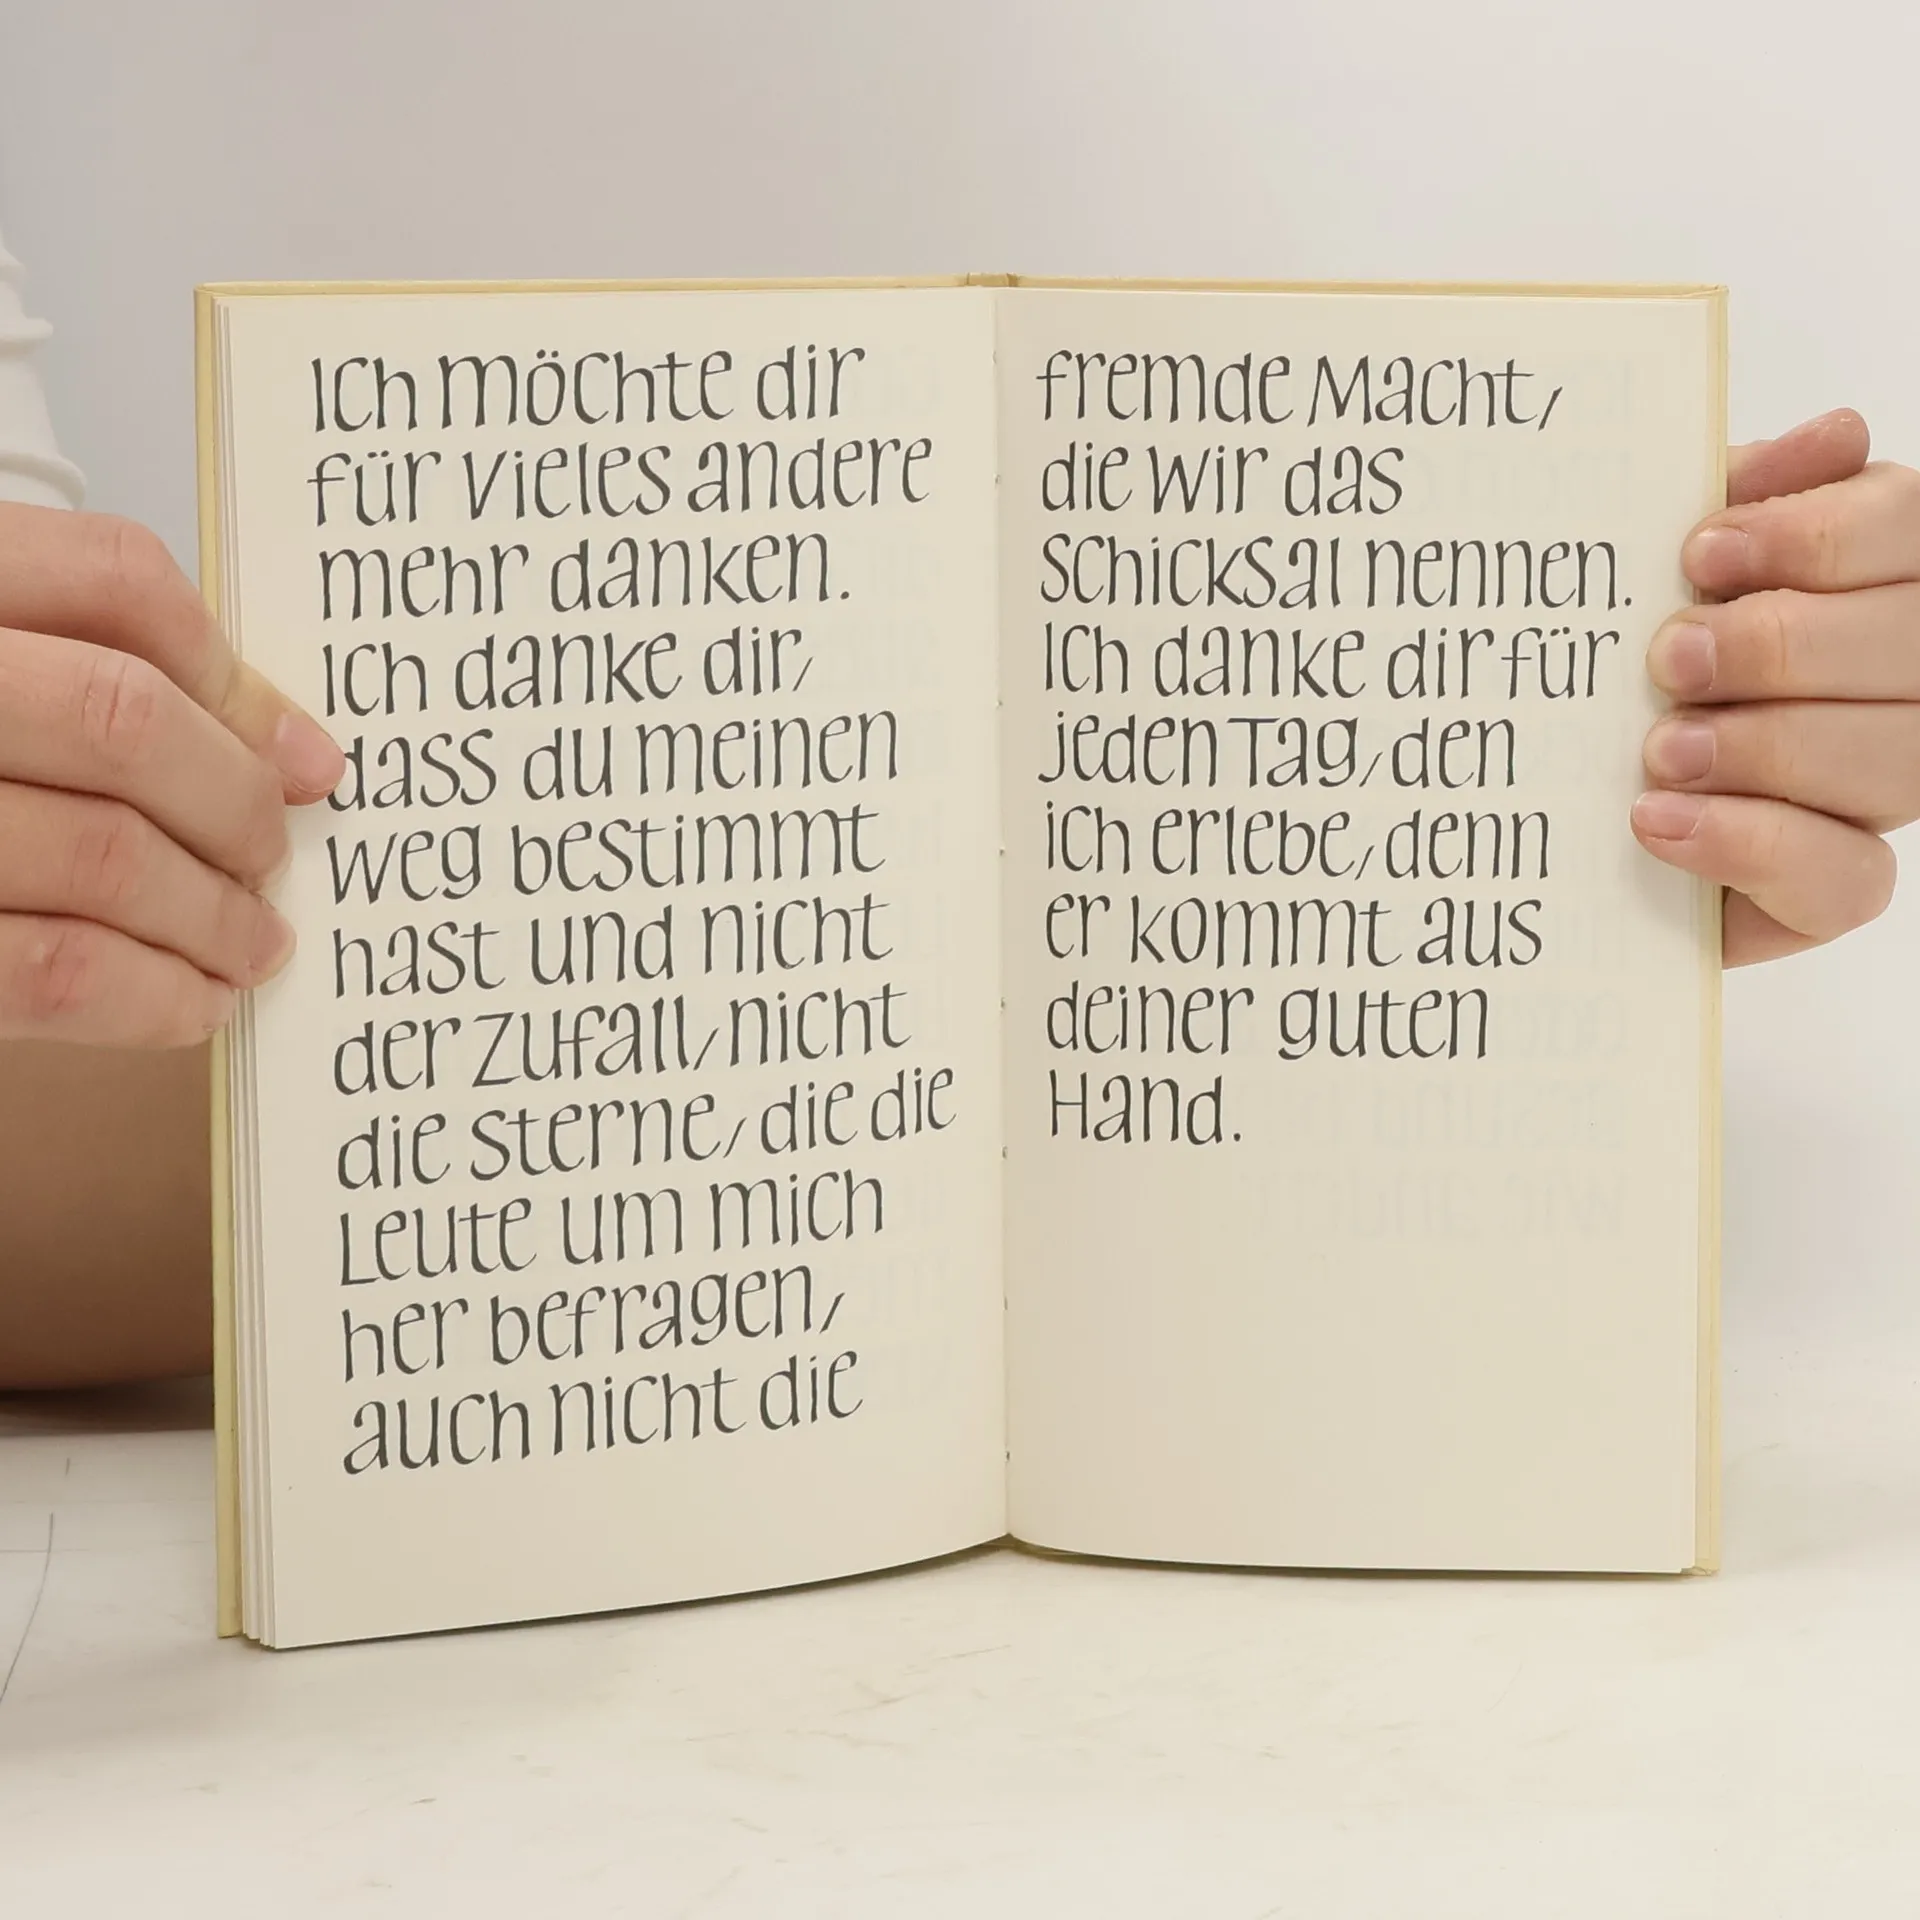 Ich möchte dir
für vieles andere
mehr danken.
Ich danke dir,
dass du meinen
Weg bestimmt
hast und nicht
der Zufall, nicht
die Sterne, die die
Leute um mich
her befragen,
auch nicht die
fremde Macht,
die wir das
Schicksal nennen.
Ich danke dir für
jeden Tag, den
ich erlebe, denn
er kommt aus
deiner guten
Hand.